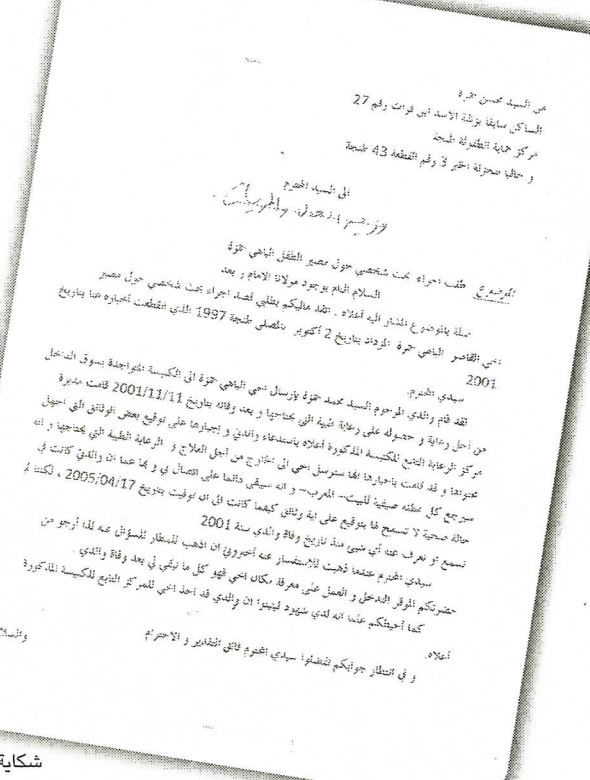 من السيد محسن حمزة
الساكن سابقا بزنقة الاسد ابن فرات رقم 27
مركز حماية الطفولة طنجة
و حاليا بتجزئة الخير 3 رقم القطعة 43 طنجة
الى السيد المحترم
الموضوع طلب اجراء بحث شخصي حول مصير الطفل الباهي حمزة
السلام التام بوجود مولانا الامام و بعد
صلة بالموضوع المشار اليه أعلاه . اتقدم اليكم بطلبي قصد اجراء بحث شخصي حول مصير
اخي القاصر الباهي حمزة المزداد بتاريخ 2 أكتوبر 1997 بالمصلى طنجة الذي انقطعت أخباره عنا بتاريخ
2001
سيدي المحترم.
لقد قام والدي المرحوم السيد محمد حمزة بإرسال اخي الباهي حمزة الى الكنيسة المتواجدة بسوق الداخل
من أجل رعاية و حصوله على رعاية طبية التي يحتاجها و بعد وفاته بتاريخ 2001/11/11 قامت مديرة
مركز الرعاية التابع للكنيسة المذكورة أعلاه باستدعاء والدتي و إجبارها على توقيع بعض الوثائق التي اجهل
محتواها و قد قامت باخبارها انها سترسل اخي الى الخارج من أجل العلاج و الرعاية الطبية التي يحتاجها و انه
سيرجع كل عطلة صيفية للبيت--المغرب-- و انه سيبقى دائما على اتصال بي و بها عما ان والدتي كانت في
حالة صحية لا تسمح لها بتوقيع على اية وثائق كيفما كانت الى ان توفيت بتاريخ 2005/04/17 ، لكننا لم
نسمع او نعرف عنه أي شيئ منذ تاريخ وفاة والدي سنة 2001
سيدي المحترم عندما ذهبت للاستفسار عنه أخبروني ان اذهب للمطار للسؤال عنه لذا أرجو من
حضرتكم الموقر التدخل و العمل على معرفة مكان اخي فهو كل ما تبقى لي بعد وفاة والدي .
كما أحيطكم علما انه لدي شهود ليثبتوا ان والدي قد اخذ اخي للمركز التابع للكنيسة المذكورة
أعلاه.
و في انتظار جوابكم تفضلوا سيدي المحترم فائق التقدير و الاحترام
شكاية